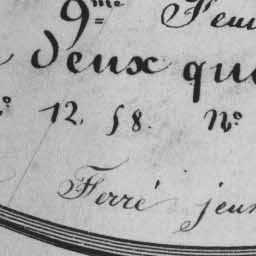 9me Feui
deux qua
No 12. 58. No
Ferré jeun